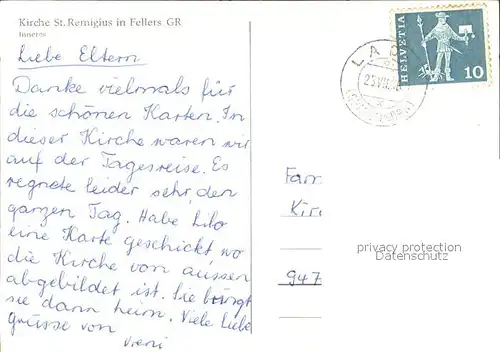 Kirche St. Remigius in Fellers GR
Inneres
Liebe Eltern
Danke vielmals für
die schönen Karten. In
dieser Kirche waren wir
auf der Tagesreise. Es
regnete leider sehr, den
ganzen Tag. Habe Lilo
eine Karte geschickt, wo
die Kirche von aussen
abgebildet ist. Sie bringt
sie dann heim. Viele liebe
Grüsse von
Vreni
HELVETIA
10
Fam
Kir
947
privacy protection
Datenschutz